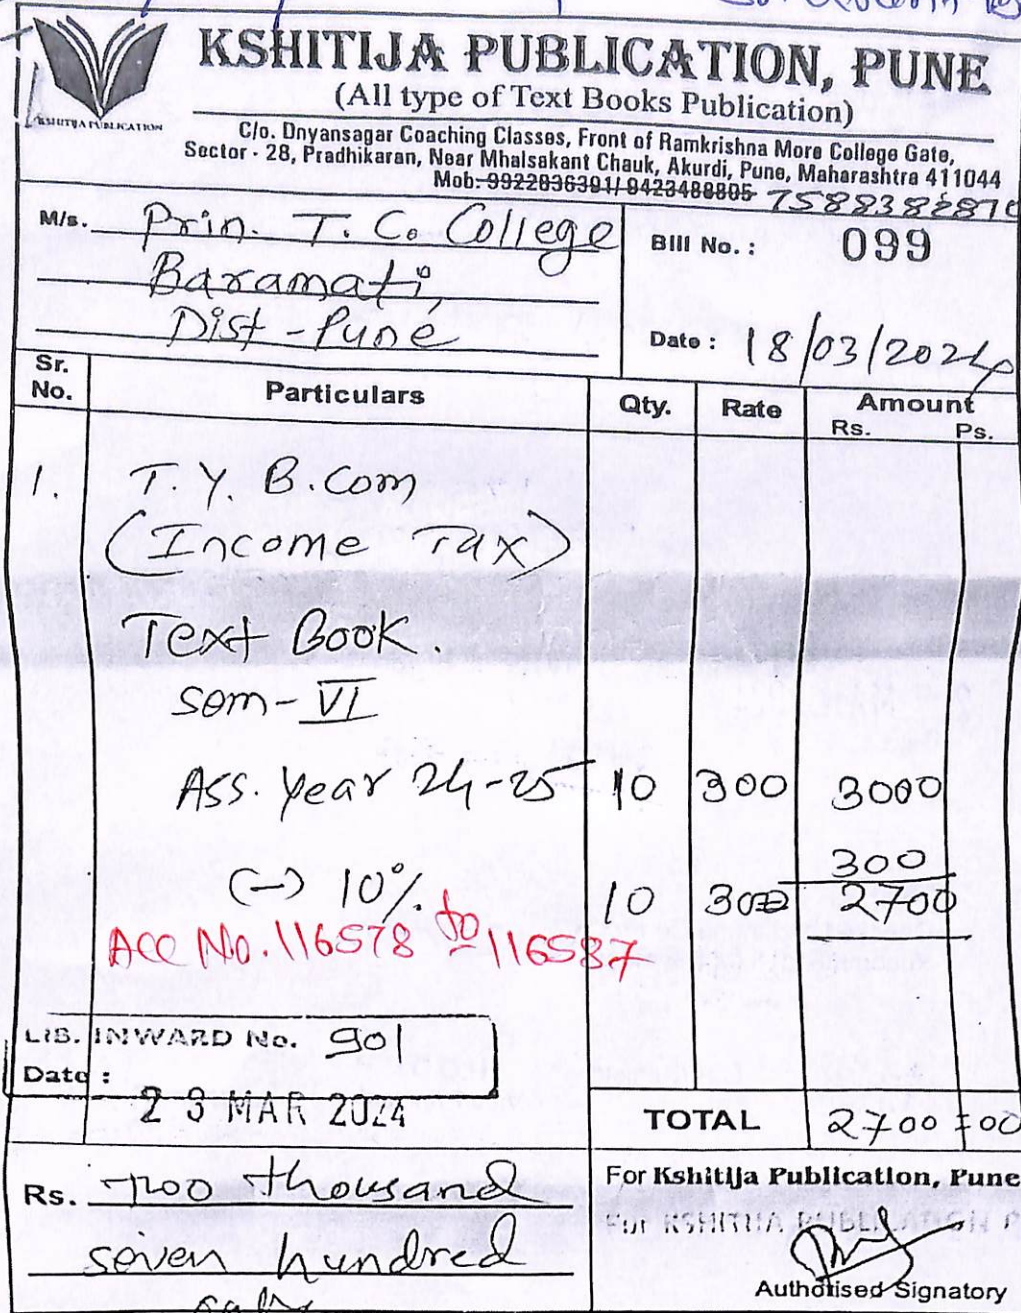 KSHITIJA PUBLICATION, PUNE
(All type of Text Books Publication)
KSHITIJA PUBLICATION
C/o. Dnyansagar Coaching Classes, Front of Ramkrishna More College Gate,
Sector - 28, Pradhikaran, Near Mhalsakant Chauk, Akurdi, Pune, Maharashtra 411044
Mob. 9922836391/ 9423488805 7588382870
M/s. Prin. T. C. College
Baramati,
Dist - Pune
Bill No.: 099
Date: 18/03/2024
Sr. No. Particulars Qty. Rate Amount
Rs. Ps.
1. T. Y. B. Com
(Income Tax)
Text Book.
Sem - VI
Ass. year 24-25 10 300 3000
300
(-) 10% 10 300 2700
Acc No. 116578 to 116587
LIB. INWARD No. 901
Date:
23 MAR 2024
TOTAL 2700 = 00
Rs. Two thousand
seven hundred
For Kshitija Publication, Pune
For KSHITIJA PUBLICATION P
Authorised Signatory